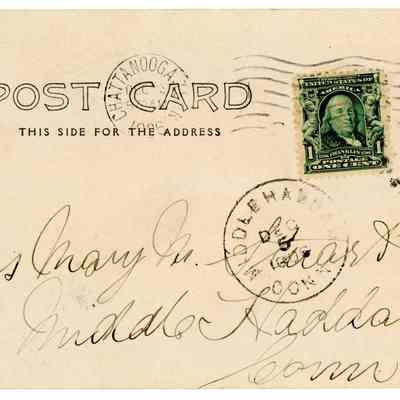 POST CARD
THIS SIDE FOR THE ADDRESS
CHATTANOOGA
UNITED STATES OF
AMERICA
1 FRANKLIN 1
POSTAGE
ONE CENT
MIDDLE HADDAM
DEC
CONN
s Mary M.
Middle Hadda
Conn